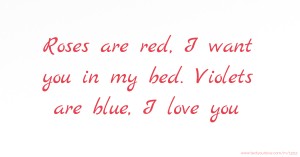 Roses are red, I want
you in my bed. Violets
are blue, I love you